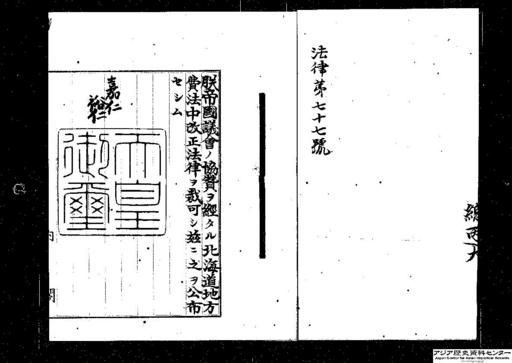 法律第七十七號
朕帝國議會ノ協賛ヲ經タル北海道地方
費法中改正法律ヲ裁可シ玆ニ之ヲ公布
セシム
嘉仁
天皇
御璽
內
閣
アジア歴史資料センター
Japan Center for Asian Historical Records